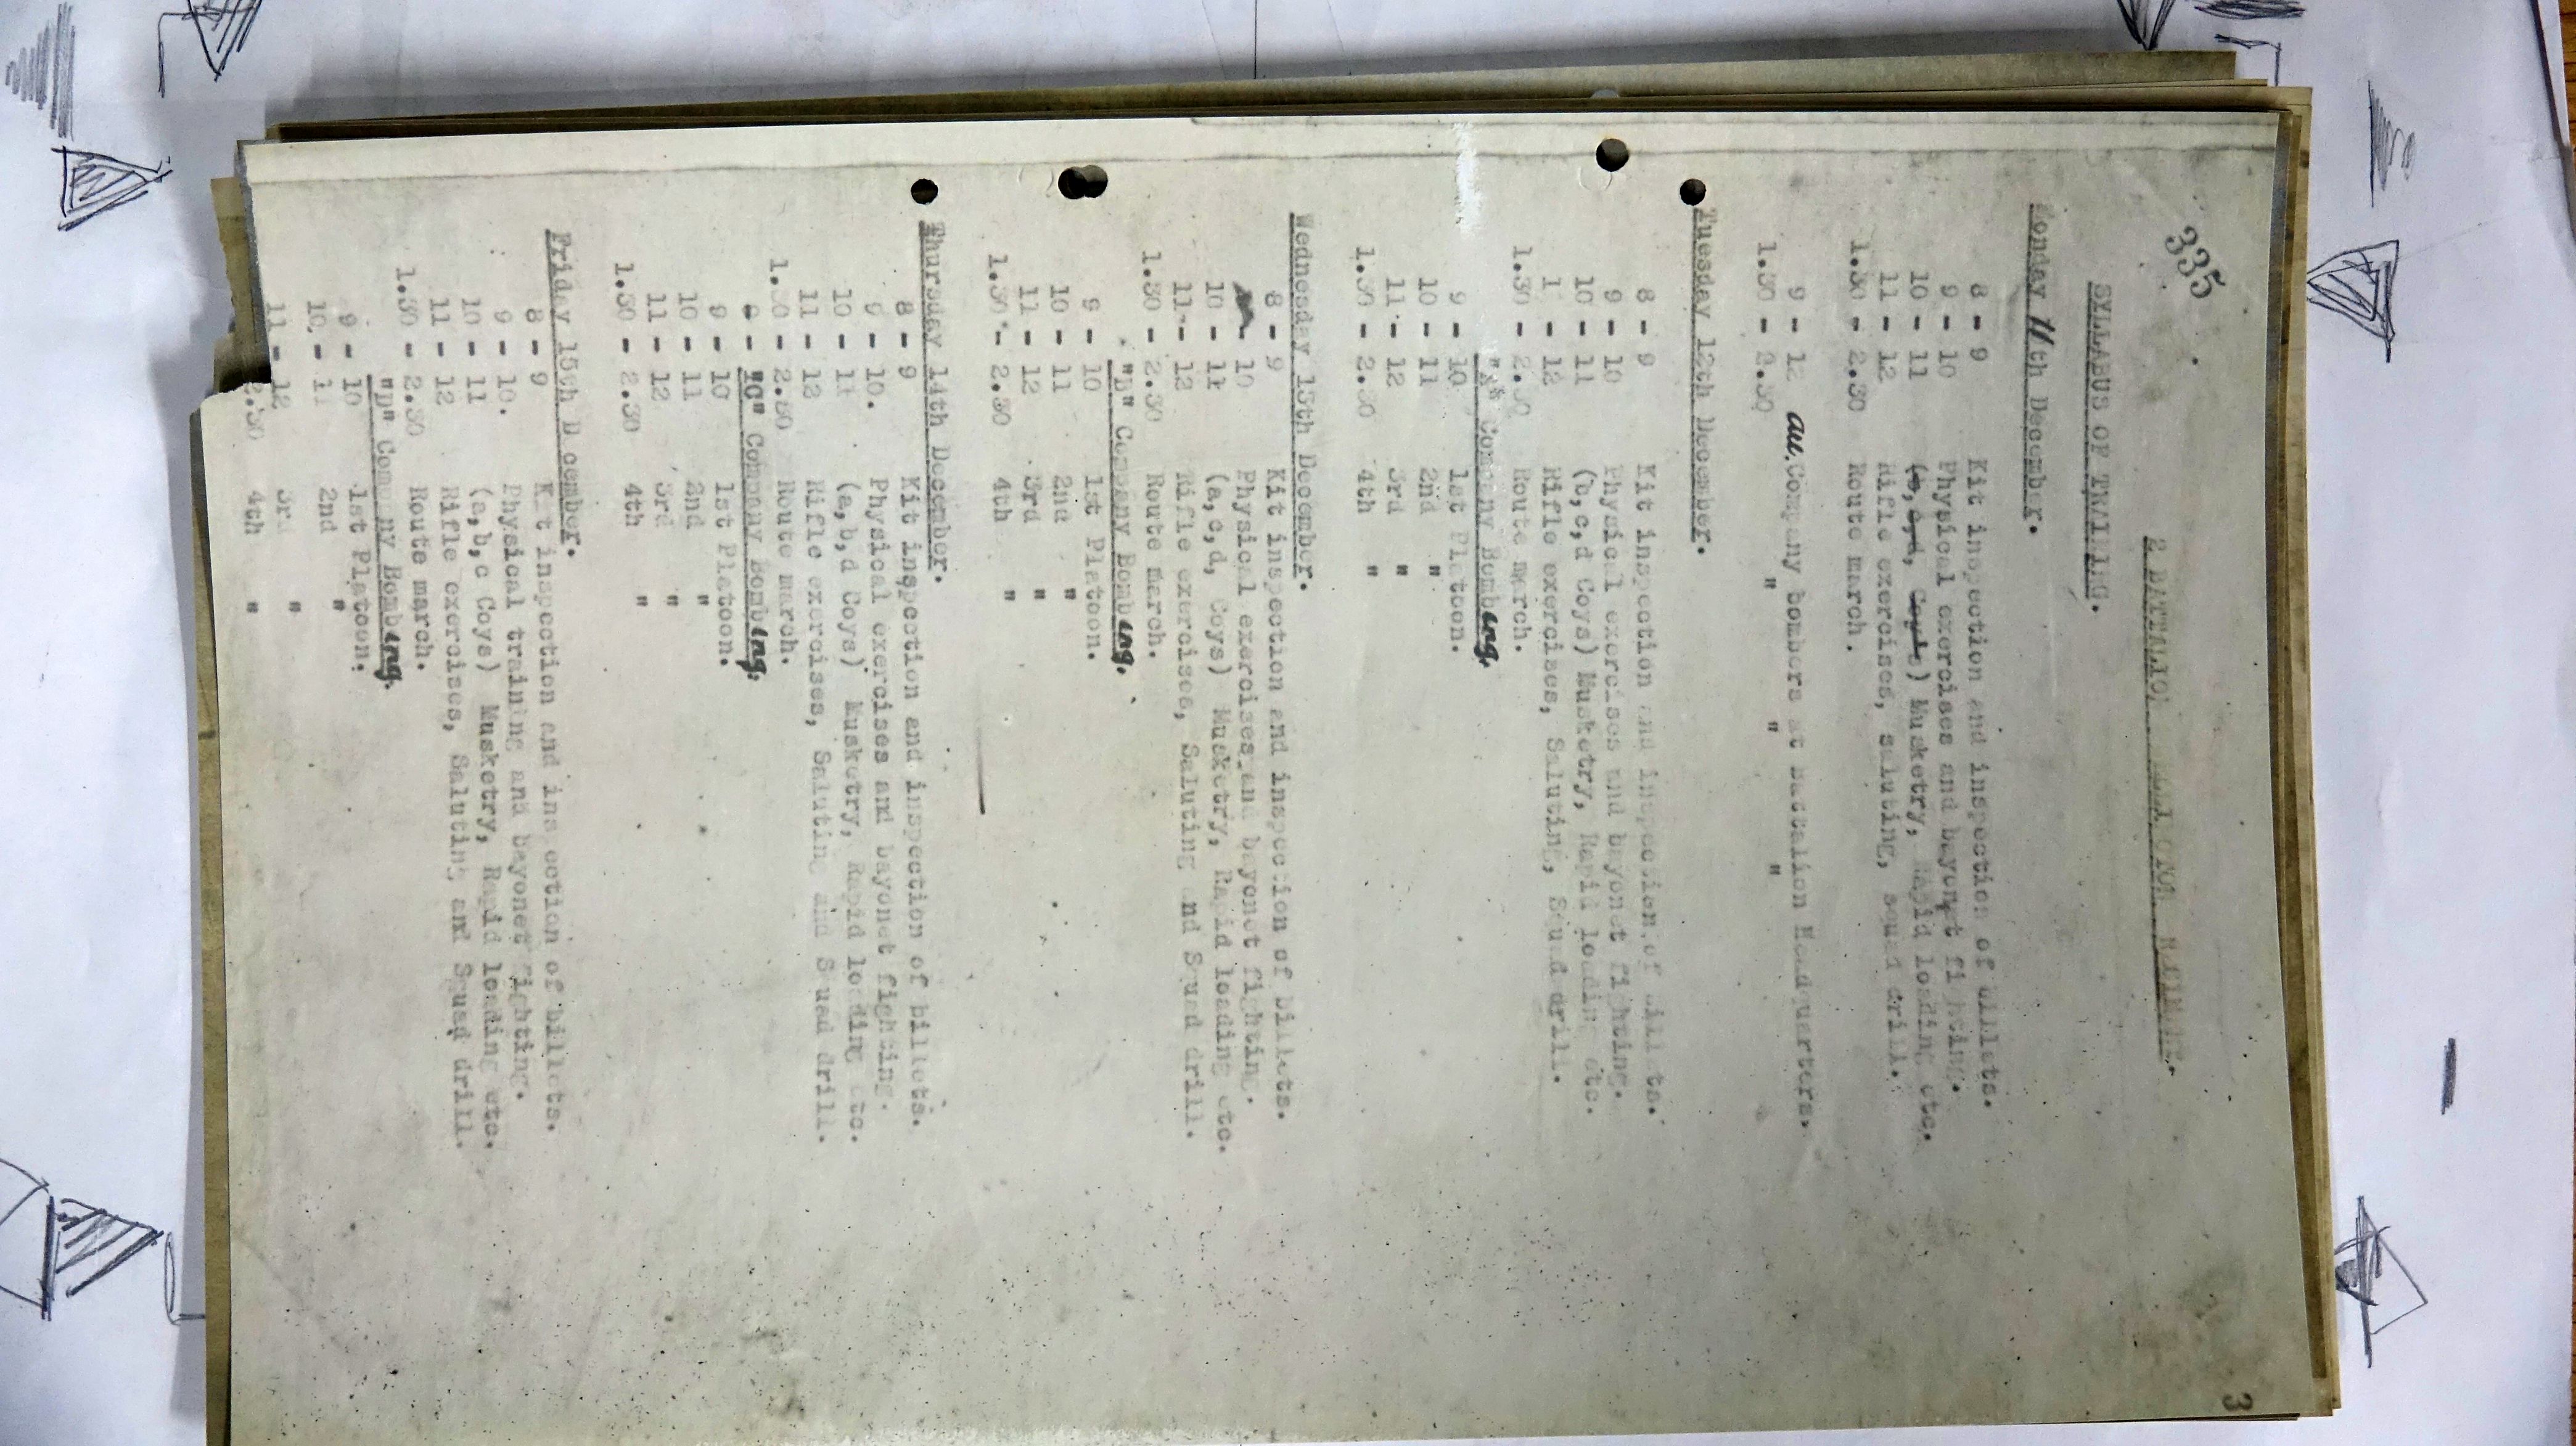 335
3
2 BATTALION
SYLLABUS OF TRAINING.
Monday 11th December.
8 - 9 Kit inspection and inspection of billets.
9 - 10 Physical exercises and bayonet fighting.
10 - 11 (b,c,d, Coy's) Musketry, Rapid loading etc.
11 - 12 Rifle exercises, saluting, squad drill.
1.30 - 2.30 Route march.
9 - 12 All Company bombers at Battalion Headquarters.
1.30 - 2.30 " " "
Tuesday 12th December.
8 - 9 Kit inspection and inspection of billets.
9 - 10 Physical exercises and bayonet fighting.
10 - 11 (b,c,d Coys) Musketry, Rapid loading etc.
1 - 12 Rifle exercises, Saluting, Squad drill.
1.30 - 2.30 Route march.
"A" Company Bombing.
9 - 10 1st Platoon.
10 - 11 2nd "
11 - 12 3rd "
1.30 - 2.30 4th "
Wednesday 13th December.
8 - 9 Kit inspection and inspection of billets.
- 10 Physical exercises and bayonet fighting.
10 - 11 (a,c,d, Coys) Musketry, Rapid loading etc.
11 - 12 Rifle exercises, Saluting and Squad drill.
1.30 - 2.30 Route march.
"B" Company Bombing.
9 - 10 1st Platoon.
10 - 11 2nd "
11 - 12 3rd "
1.30 - 2.30 4th "
Thursday 14th December.
8 - 9 Kit inspection and inspection of billets.
9 - 10. Physical exercises and bayonet fighting.
10 - 11 (a,b,d Coys) Musketry, Rapid loading etc.
11 - 12 Rifle exercises, Saluting and Squad drill.
1.30 - 2.30 Route march.
"C" Company Bombing.
9 - 10 1st Platoon.
10 - 11 2nd "
11 - 12 3rd "
1.30 - 2.30 4th "
Friday 15th December.
8 - 9 Kit inspection and inspection of billets.
9 - 10. Physical training and bayonet fighting.
10 - 11 (a,b,c Coys) Musketry, Rapid loading etc.
11 - 12 Rifle exercises, Saluting and Squad drill.
1.30 - 2.30 Route march.
"D" Company Bombing.
9 - 10 1st Platoon.
10. - 11 2nd "
11 - 12 3rd "
2.30 4th "